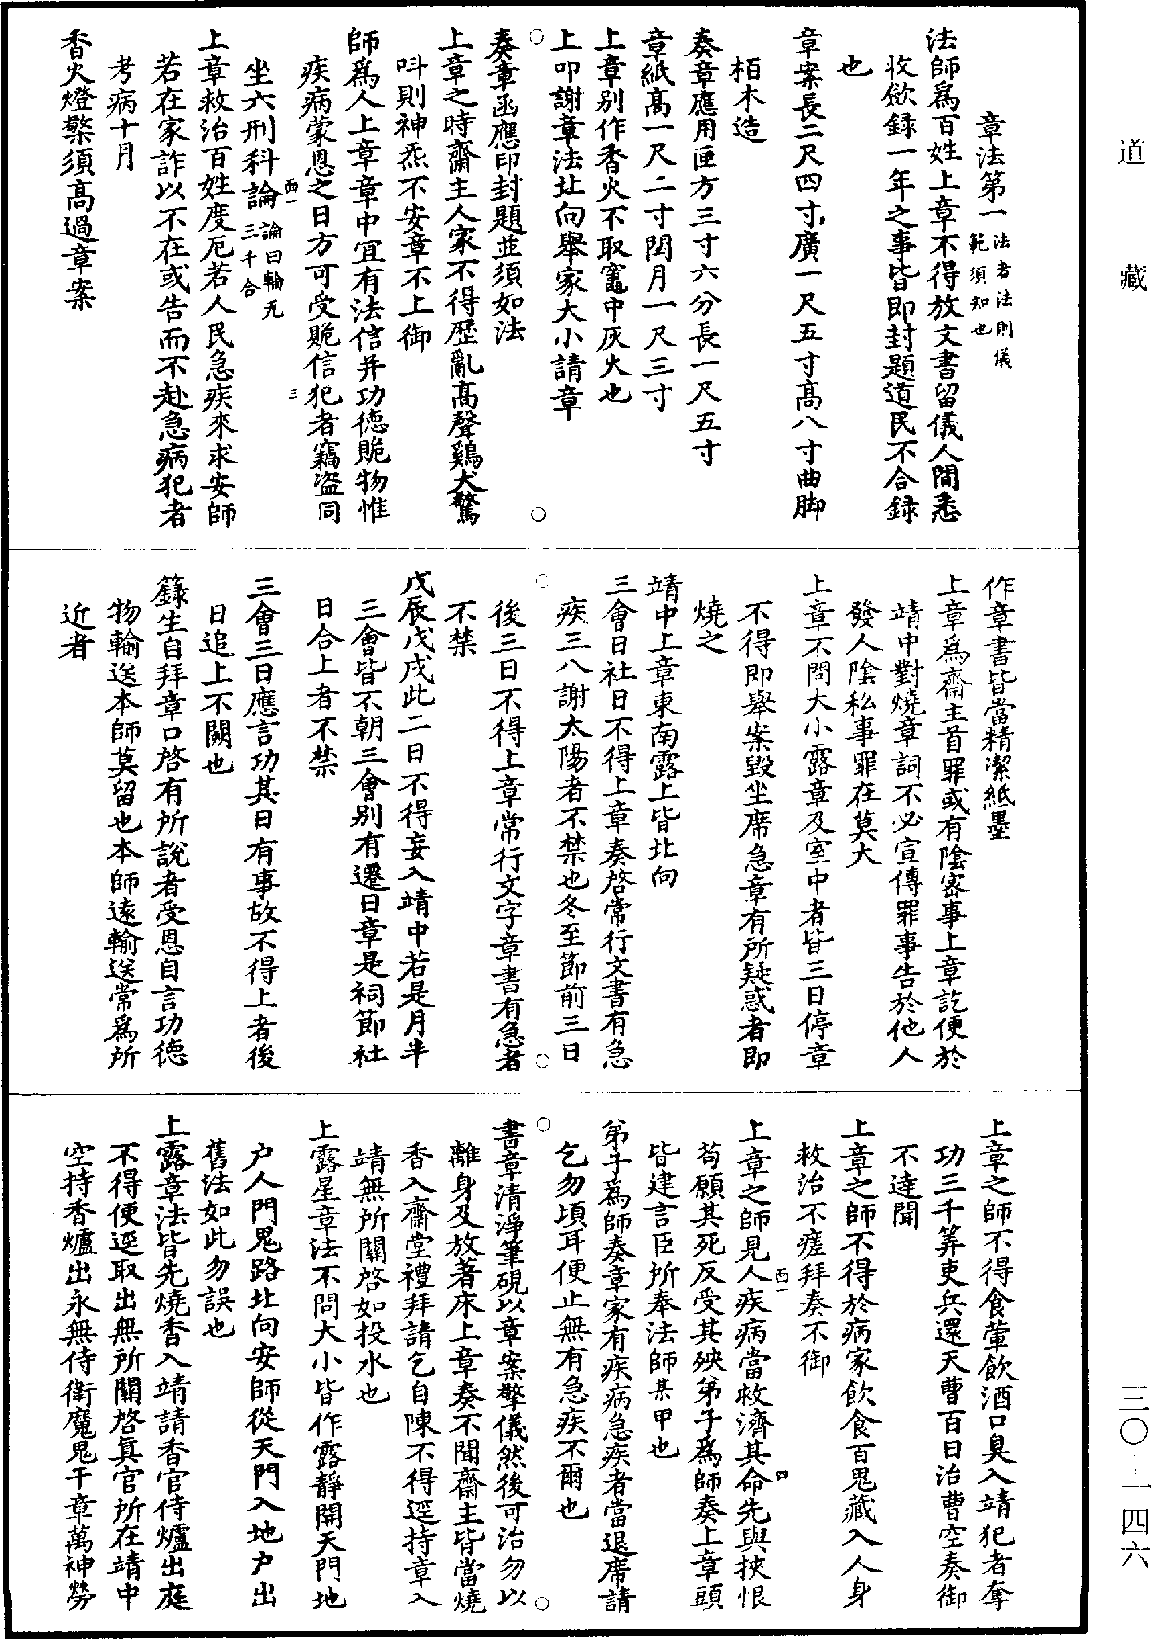 道藏
章法第一法者法則儀範須知也
法師爲百姓上章不得放文書留儀人間悉
收斂録一年之事皆即封題道民不合録
也
章案長二尺四寸廣一尺五寸髙八寸曲脚
栢木造
奏章應用匣方三寸六分長一尺五寸
章紙髙一尺二寸閏月一尺三寸
上章别作香火不取竈中灰火也
上叩謝章法北向舉家大小請章
奏章函應印封題並須如法
上章之時齋主人家不得歷亂髙聲鷄犬驚
呌則神炁不安章不上御
師爲人上章章中宜有法信并功德贍物惟
疾病蒙恩之日方可受贍信犯者竊盜同
坐六刑科論論曰輪无三千合
上章救治百姓度厄若人民急疾來求安師
若在家詐以不在或告而不赴急病犯者
考病十月
香火燈檠須髙過章案
作章書皆當精潔紙墨
上章爲齋主首罪或有陰密事上章訖便於
靖中對燒章詞不必宣傳罪事告於他人
發人陰私事罪在莫大
上章不問大小露章及室中者皆三日停章
不得即舉案毀坐席急章有所疑惑者即
燒之
靖中上章東南露上皆北向
三會日社日不得上章奏啓常行文書有急
疾三八謝太陽者不禁也冬至節前三日
後三日不得上章常行文字章書有急者
不禁
戊辰戊戌此二日不得妄入靖中若是月半
三會皆不朝三會别有遷日章是祠節社
日合上者不禁
三會三日應言功其日有事故不得上者後
日追上不闕也
籙生自拜章口啓有所說者受恩自言功德
物輸送本師莫留也本師遠輸送常爲所
近者
上章之師不得食葷飲酒口臭入靖犯者奪
功三千筭吏兵還天曹百日治曹空奏御
不達聞
上章之師不得於病家飲食百鬼藏入人身
救治不瘥拜奏不御
上章之師見人疾病當救濟其命先與挾恨
苟願其死反受其殃弟子爲師奏上章頭
皆建言臣所奉法師某甲也
弟子爲師奏章家有疾病急疾者當退席請
乞勿頃耳便止無有急疾不爾也
書章清淨筆硯以章案擎儀然後可治勿以
離身及放著床上章奏不聞齋主皆當燒
香入齋堂禮拜請乞自陳不得逕持章入
靖無所關啓如投水也
上露星章法不問大小皆作露靜開天門地
户人門鬼路北向安師從天門入地户出
舊法如此勿誤也
上露章法皆先燒香入靖請香官侍爐出庭
不得便逕取出無所關啓真官所在靖中
空持香爐出永無侍衛魔鬼干章萬神勞
三〇-一四六